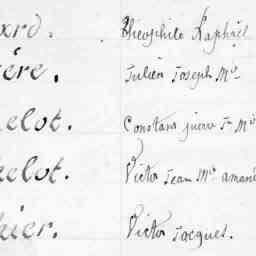 ard. Théophile Raphaël
ière. Julien Joseph Mie
elot. Constant pierre Fs Mie
elot. Victor Jean Mie amand
hier. Victor Jacques.